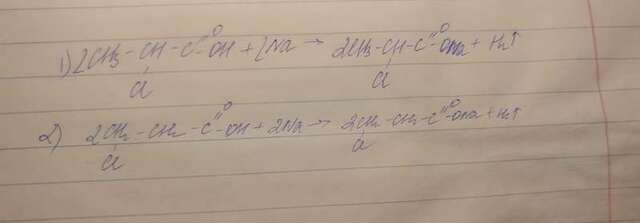 1) 2CH₃ - CH - C =O - OH + 2Na → 2CH₃ - CH - C =O - ONa + H₂↑
Cl Cl
2) 2CH₂ - CH₂ - C =O - OH + 2Na → 2CH₂ - CH₂ - C =O - ONa + H₂↑
Cl Cl